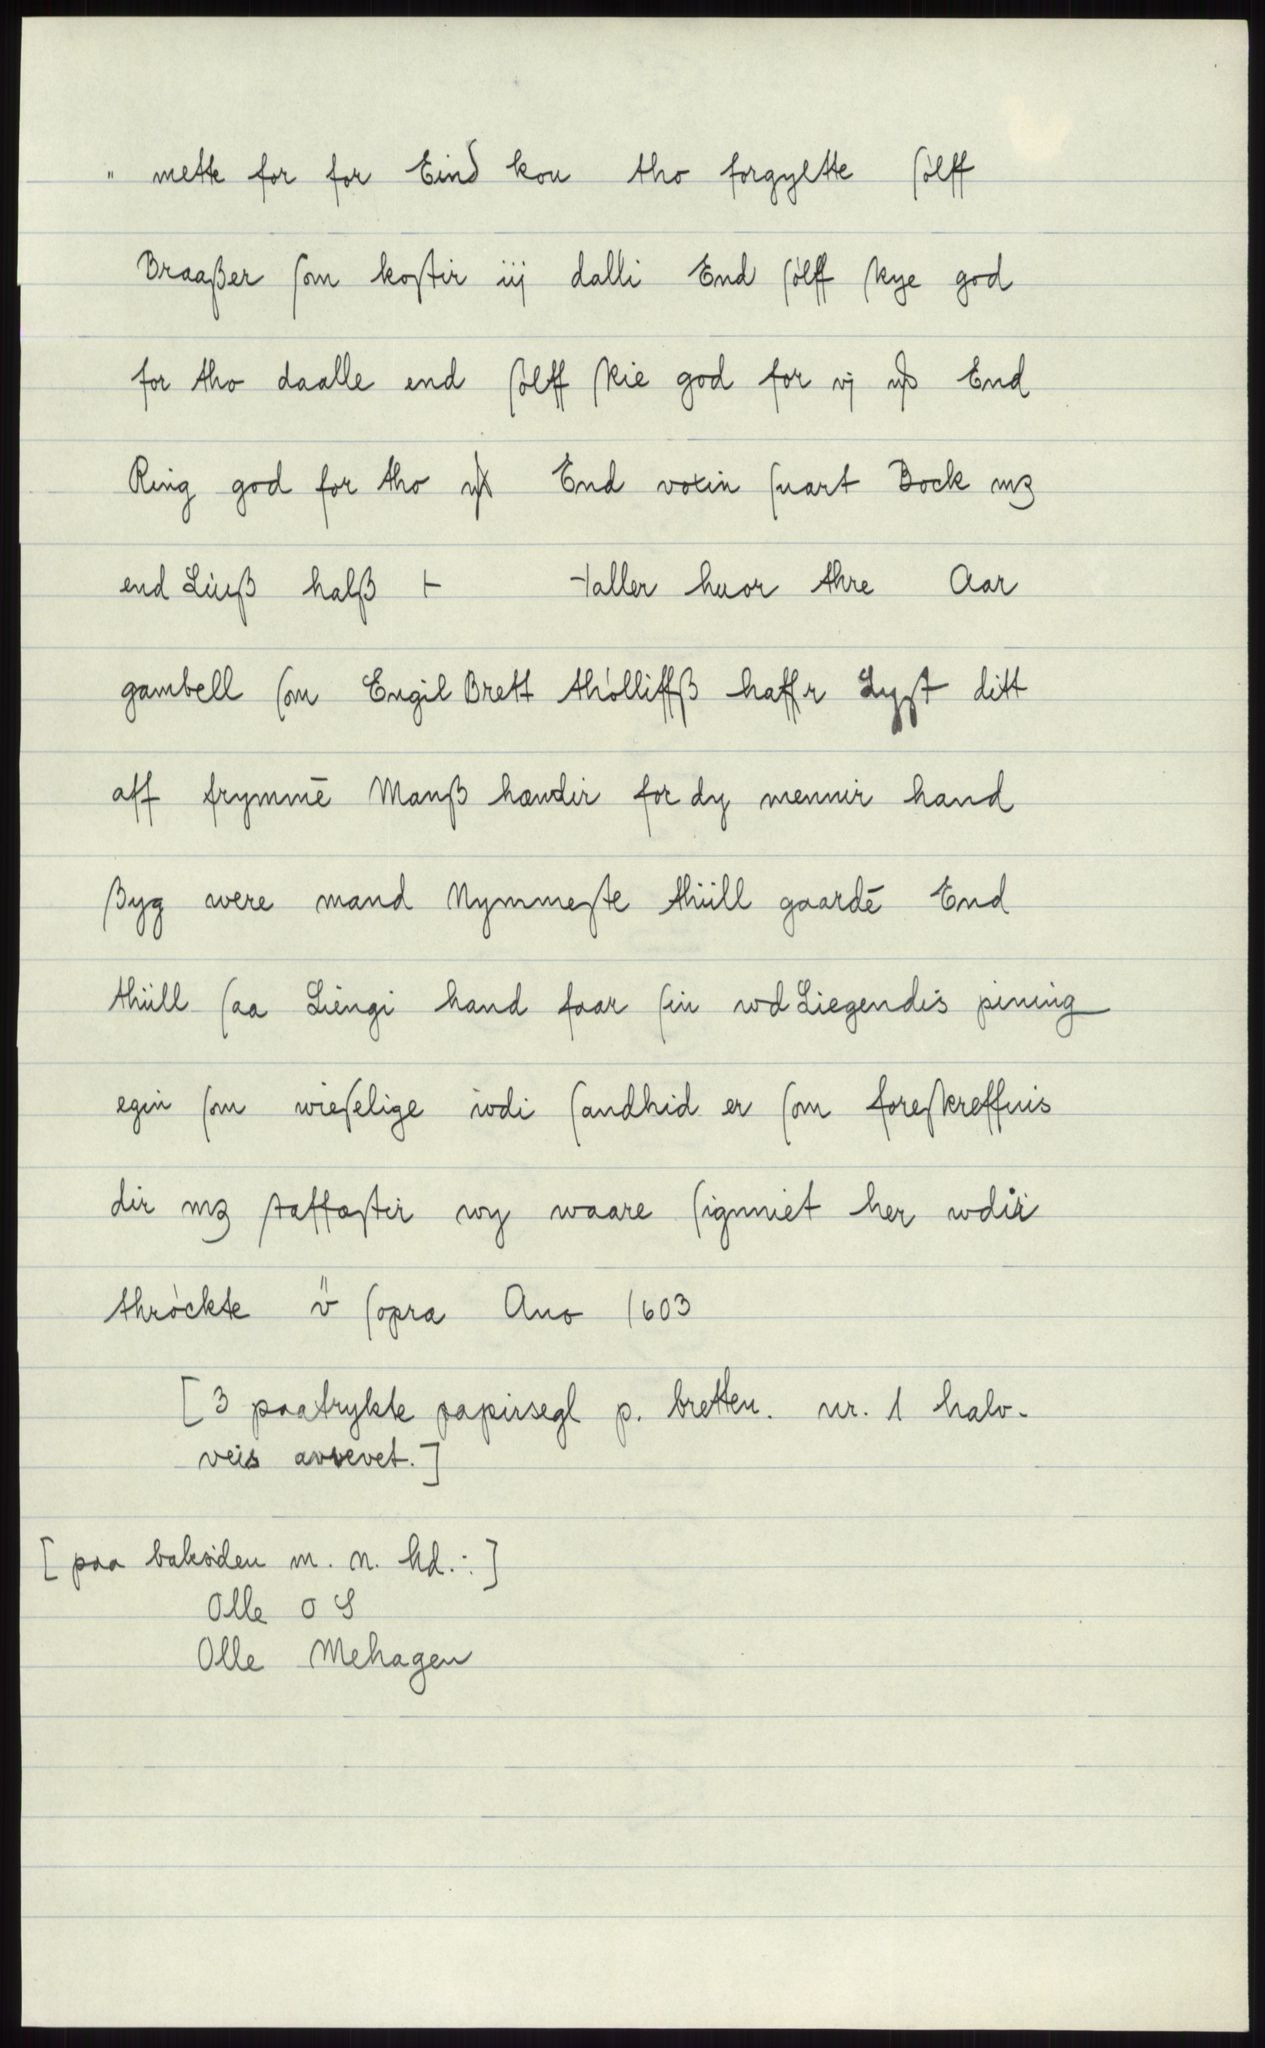 " mette for for Eind kou tho forgyltte ſølff
Braaßer ſom koſtir iij dalli End ſølff ſkye god
for tho daalle end ſølff ſkie god for vj End
Ring god for tho End voxin ſuart Bock mʒ
end Liuß halß taller huor thre Aar
gambell ſom Engil Brett thólliffß haffr Lyſt ditt
aff frymmē Manß hændir for dy mennir hand
ßyg were mand Nymmeſte thiill gaardē End
thiill ſaa Liengi hand faar ſin wd Liegendis pining
egin ſom wieſelige wdi ſandhid er ſom foreſkreffuis
dir mʒ ſtaffæſtir wy waare ſignniet her wdir
thrøckte v̈ ſopra Ano 1603
[3 paatrykte papirsegl p. bretten. nr. 1 halv-
veis avrevet.]
[paa baksiden m. n. hd.:]
Olle O S
Olle Mehagen